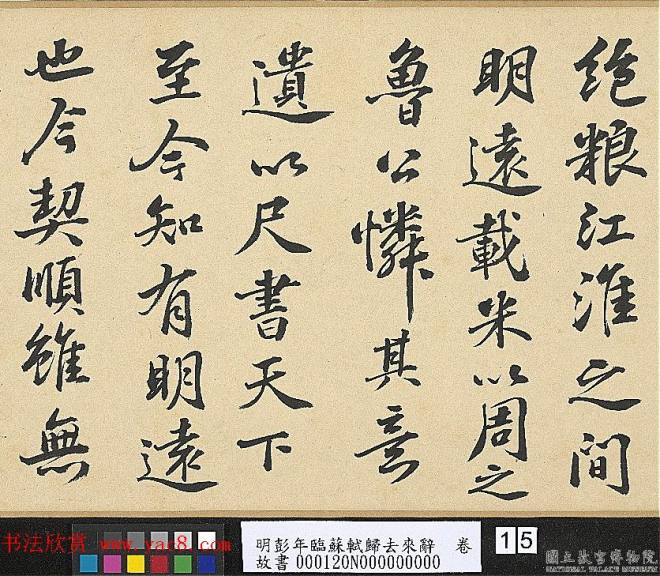 绝粮江淮之间
明遠載米以周之
魯公憐其意
遺以尺書天下
至今知有明遠
也今契順雖無
书法欣赏 www.yac8.com
明彭年臨蘇軾歸去來辭 卷
故書 000120N000000000
15
國立故宮博物院
NATIONAL PALACE MUSEUM